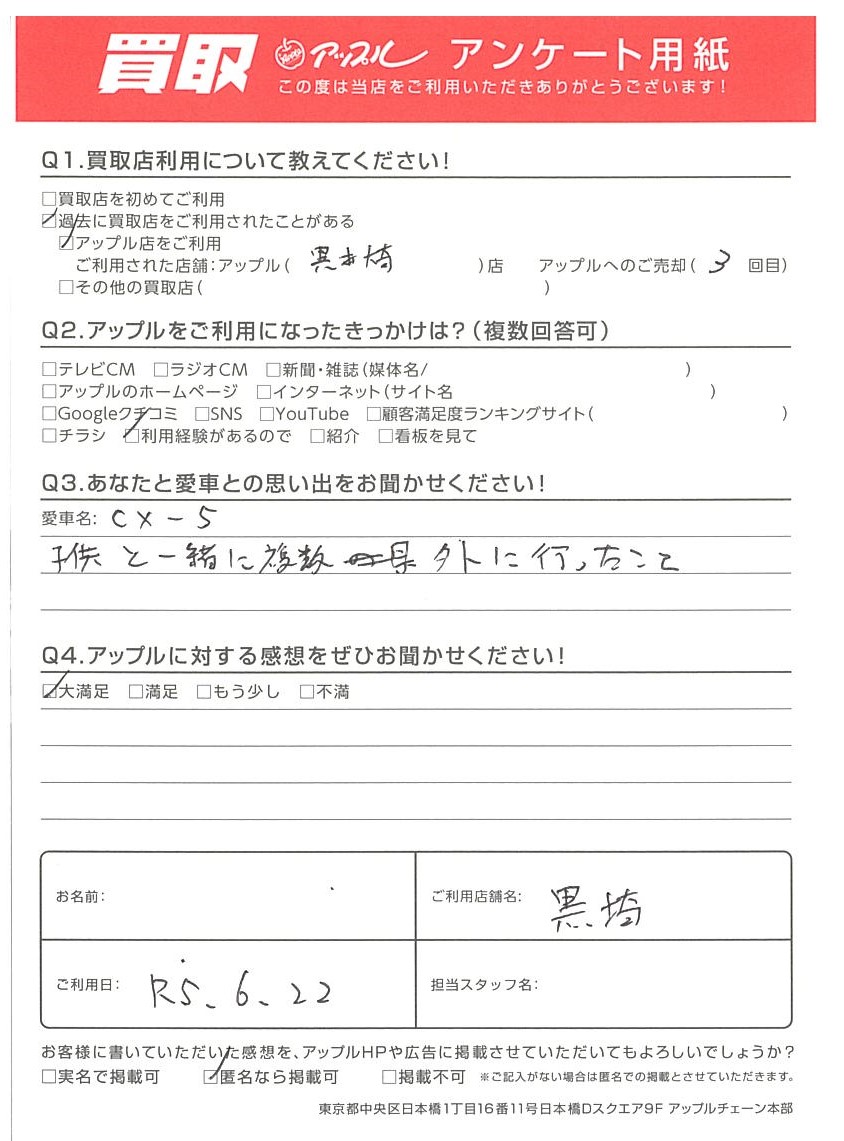 買取 Apple アップル アンケート用紙
この度は当店をご利用いただきありがとうございます!
Q1.買取店利用について教えてください!
□買取店を初めてご利用
☑過去に買取店をご利用されたことがある
☑アップル店をご利用
ご利用された店舗:アップル( 黒埼 )店 アップルへのご売却( 3 回目)
□その他の買取店( )
Q2.アップルをご利用になったきっかけは?(複数回答可)
□テレビCM □ラジオCM □新聞・雑誌(媒体名/ )
□アップルのホームページ □インターネット(サイト名 )
□Googleクチコミ □SNS □YouTube □顧客満足度ランキングサイト( )
□チラシ ☑利用経験があるので □紹介 □看板を見て
Q3.あなたと愛車との思い出をお聞かせください!
愛車名: CX-5
子供と一緒に複数県外に行ったこと
Q4.アップルに対する感想をぜひお聞かせください!
☑大満足 □満足 □もう少し □不満
お名前: ご利用店舗名: 黒埼
ご利用日: R5.6.22 担当スタッフ名:
お客様に書いていただいた感想を、アップルHPや広告に掲載させていただいてもよろしいでしょうか?
□実名で掲載可 ☑匿名なら掲載可 □掲載不可 ※ご記入がない場合は匿名での掲載とさせていただきます。
東京都中央区日本橋1丁目16番11号日本橋Dスクエア9F アップルチェーン本部